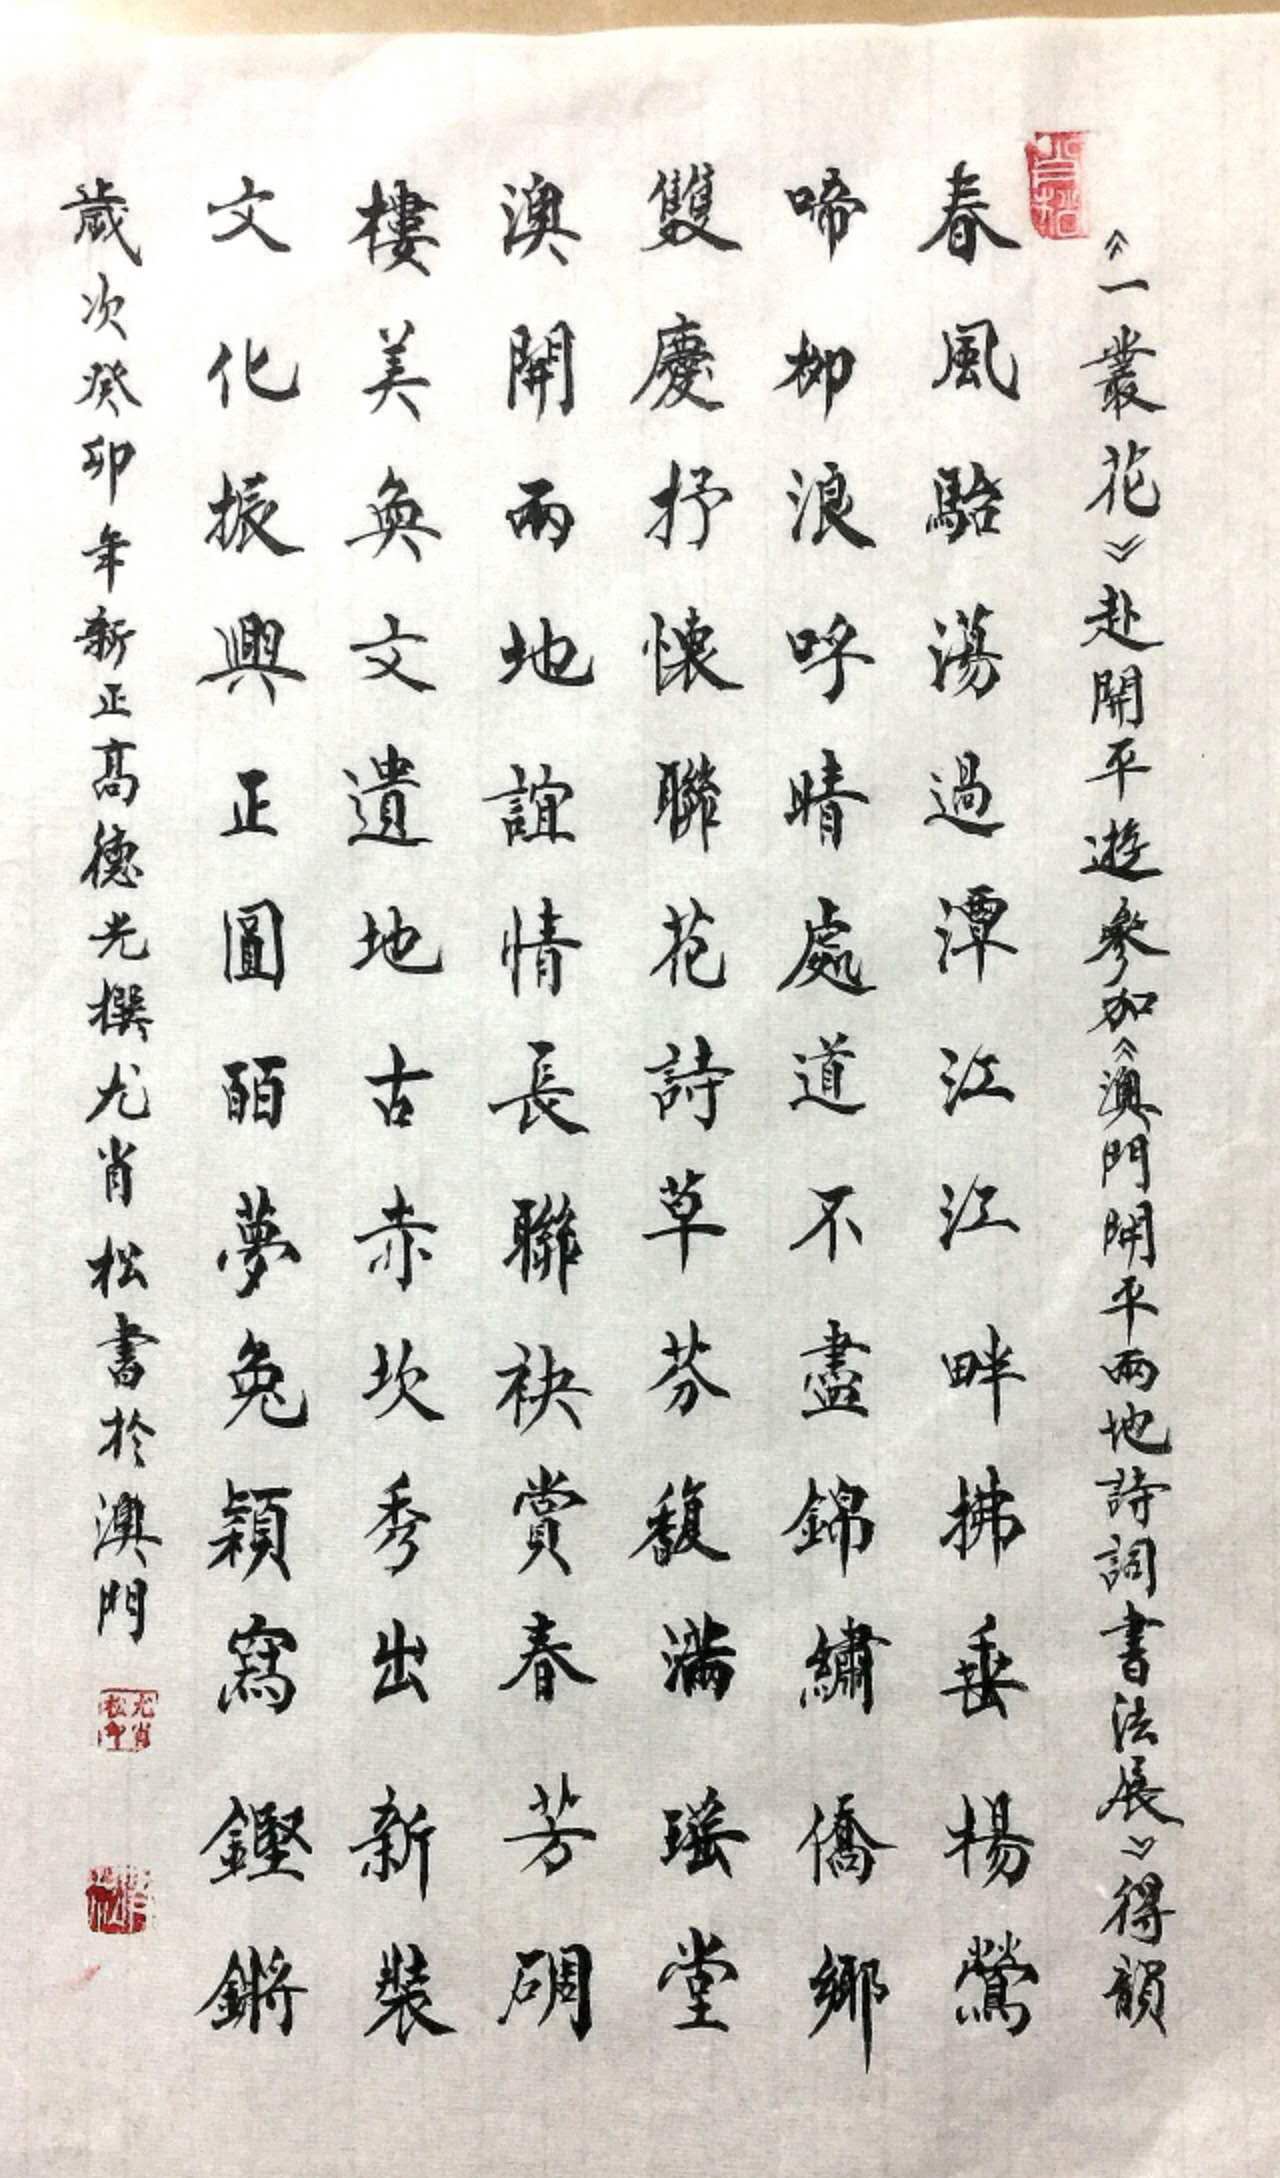 《一叢花》赴開平遊參加《澳門開平兩地詩詞書法展》得韻
春風駘蕩過潭江江畔拂垂楊鶯
啼柳浪呼晴處道不盡錦繡僑鄉
雙慶抒懷聯花詩草芬馥滿瑤堂
澳開兩地誼情長聯袂賞春芳碉
樓美奐文遺地古赤坎秀出新裝
文化振興正圓百夢兔穎寫鏗鏘
歲次癸卯年新正高德光撰尤肖松書於澳門
肖松
尤肖松印